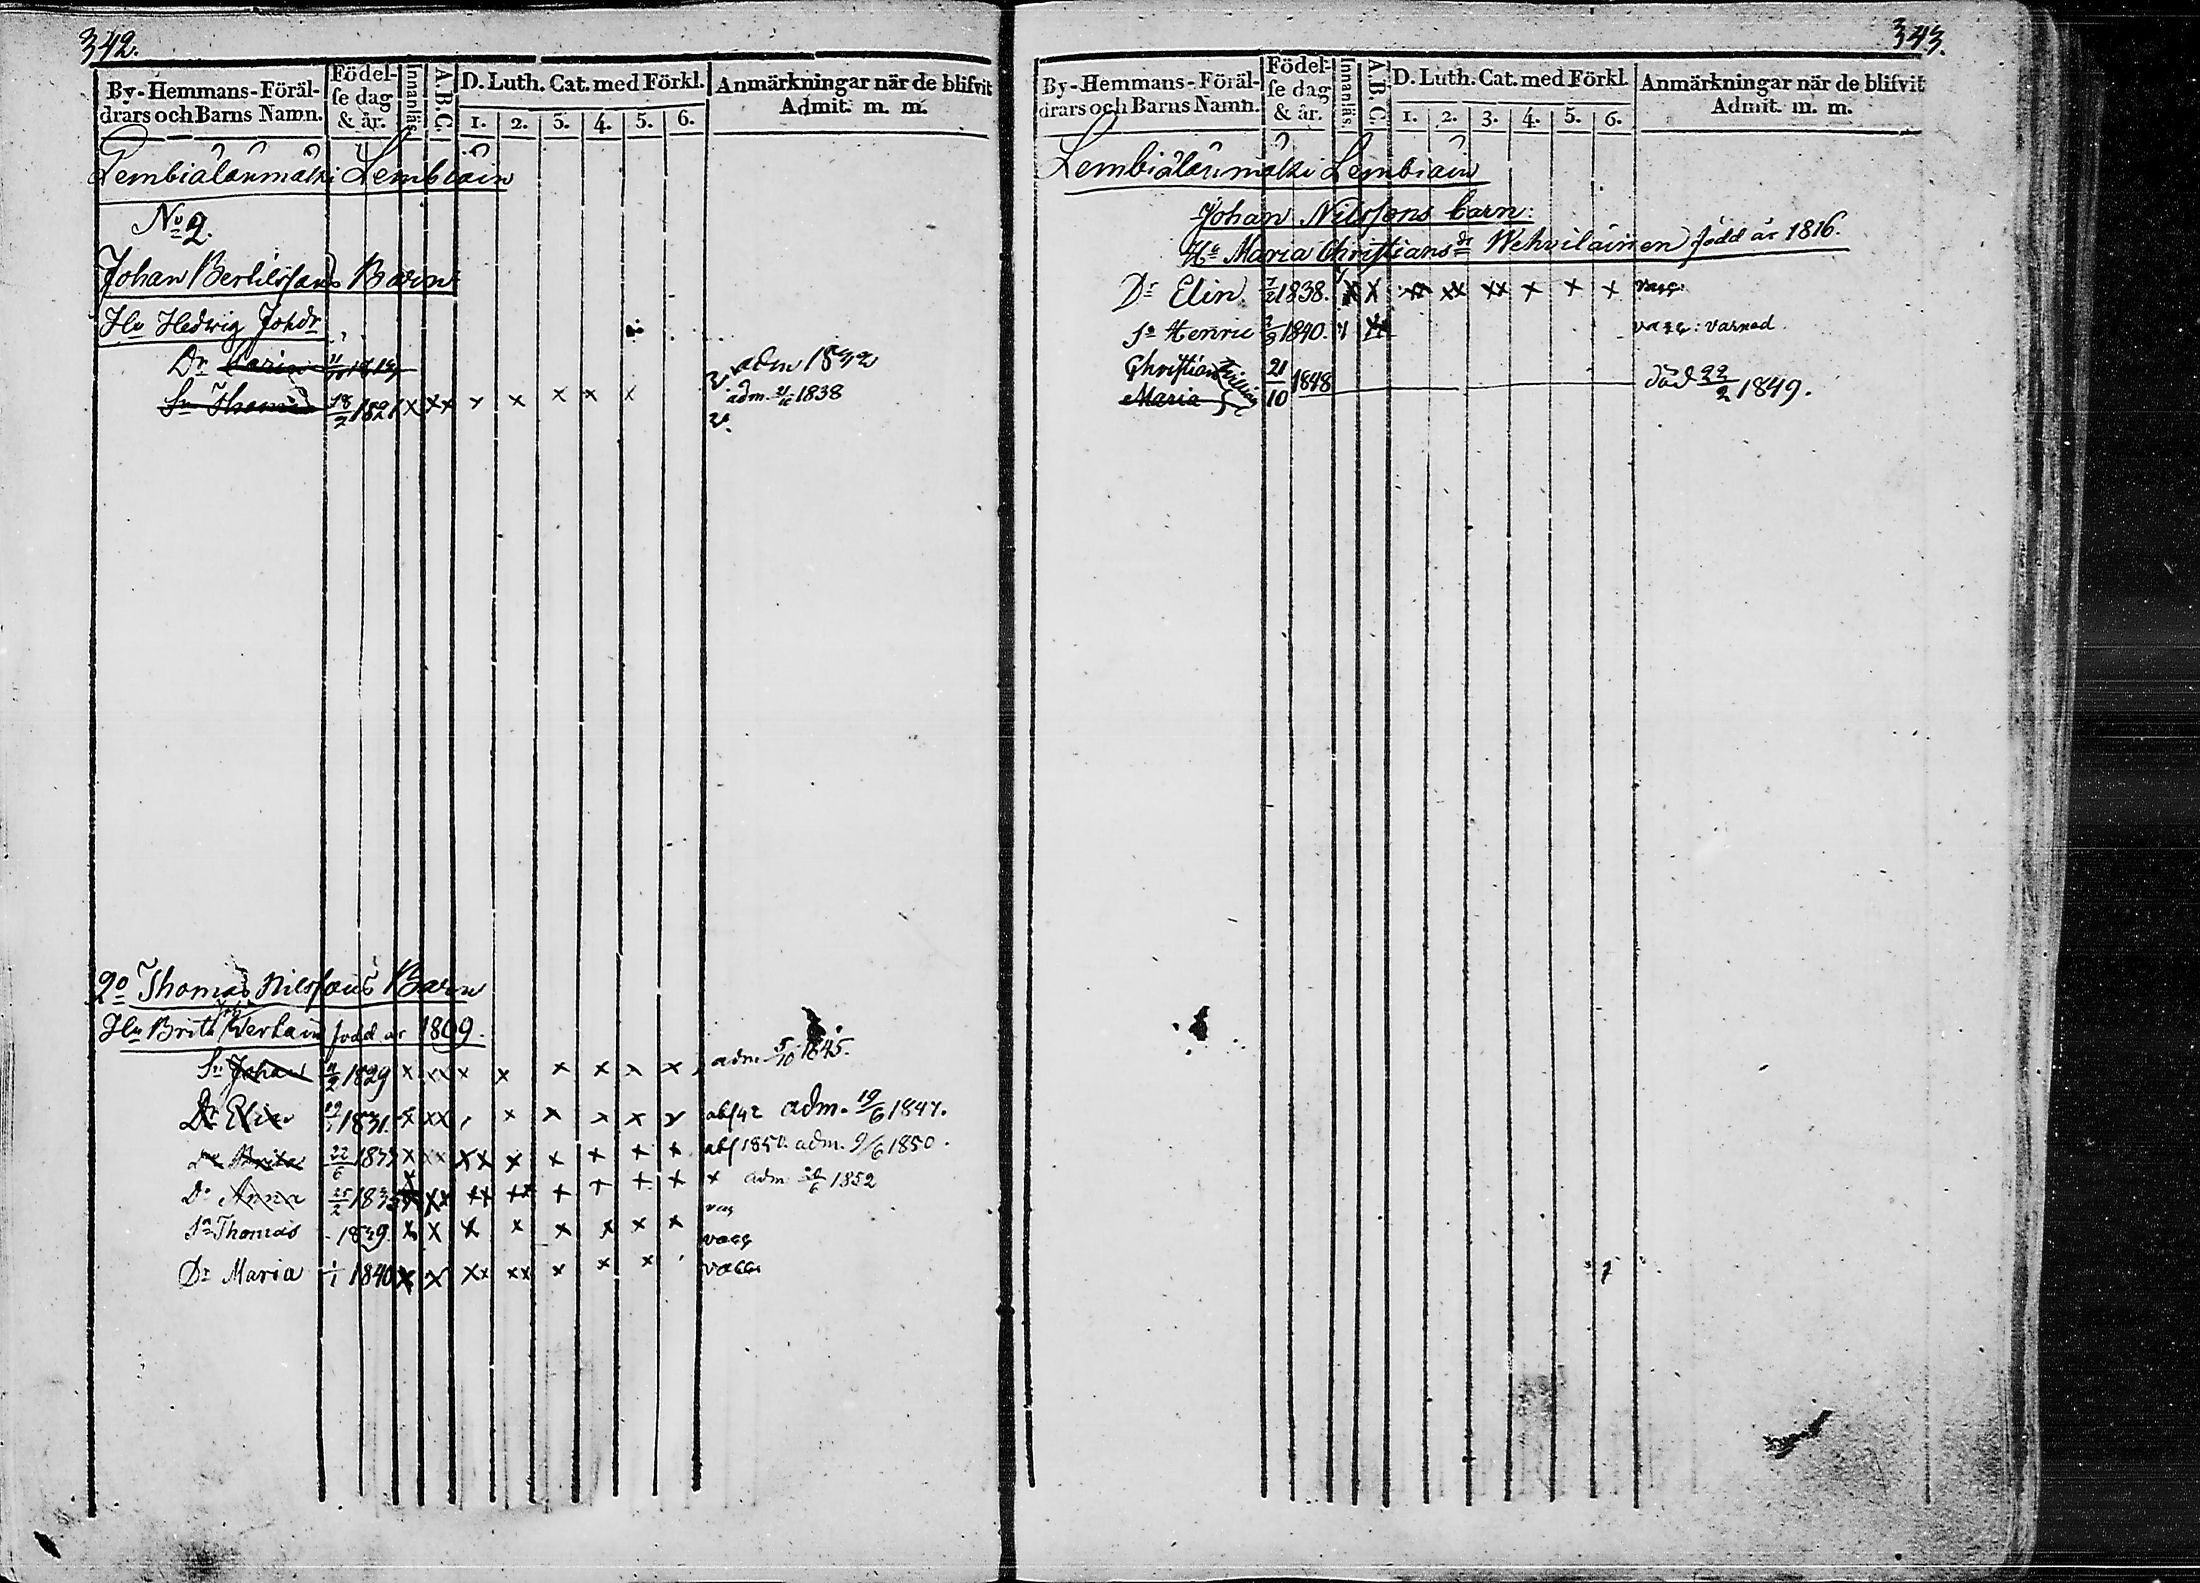 342.
By-Hemmans-Föräl-
drars och Barns Namn.
Födel-
ſe dag
& år.
Innanläs.
A.B.C.
D. Luth. Cat. med Förkl.
1. 2. 3. 4. 5. 6.
Anmärkningar när de blifvit
Admit. m. m.
Lembiälänmäki Lembiäin
No 2.
Johan Bertilssons Barn
Hu Hedwig Johdr
Dr Carin adm 1832
Sn Thomas 18/2 1821 x xx x x x x x adm. 1838
2o Thomas Nilssons Barn
Hu Brita född år 1809.
Sn Johan 1829 x xx x x x x x x adm 5/10 1845.
Dr Elin 1831. x xx x x x x x adm. 19/6 1847.
Dr Brita 22/6 1833 x xx xx x x x x x abs 1850. adm. 9/6 1850.
Dr Anna 25/2 1835 xx xx xx x x x x x adm 1852
Sn Thomas 1839. x x x x x x x x vacc
Dr Maria 1/1 1840 x x xx xx x x x vacc.
343.
By-Hemmans-Föräl-
drars och Barns Namn.
Födel-
ſe dag
& år.
Innanläs.
A.B.C.
D. Luth. Cat. med Förkl.
1. 2. 3. 4. 5. 6.
Anmärkningar när de blifvit
Admit. m. m.
Lembiälänmäki Lembiäin
Johan Nilssons barn:
Hu Maria Christiansdr Wehviläinen född år 1816.
Dr Elin 1838. x x xx xx xx x x x vacc:
Sn Henric 1840. vacc:
Christian
Maria 21/10 1848 död 22/2 1849.